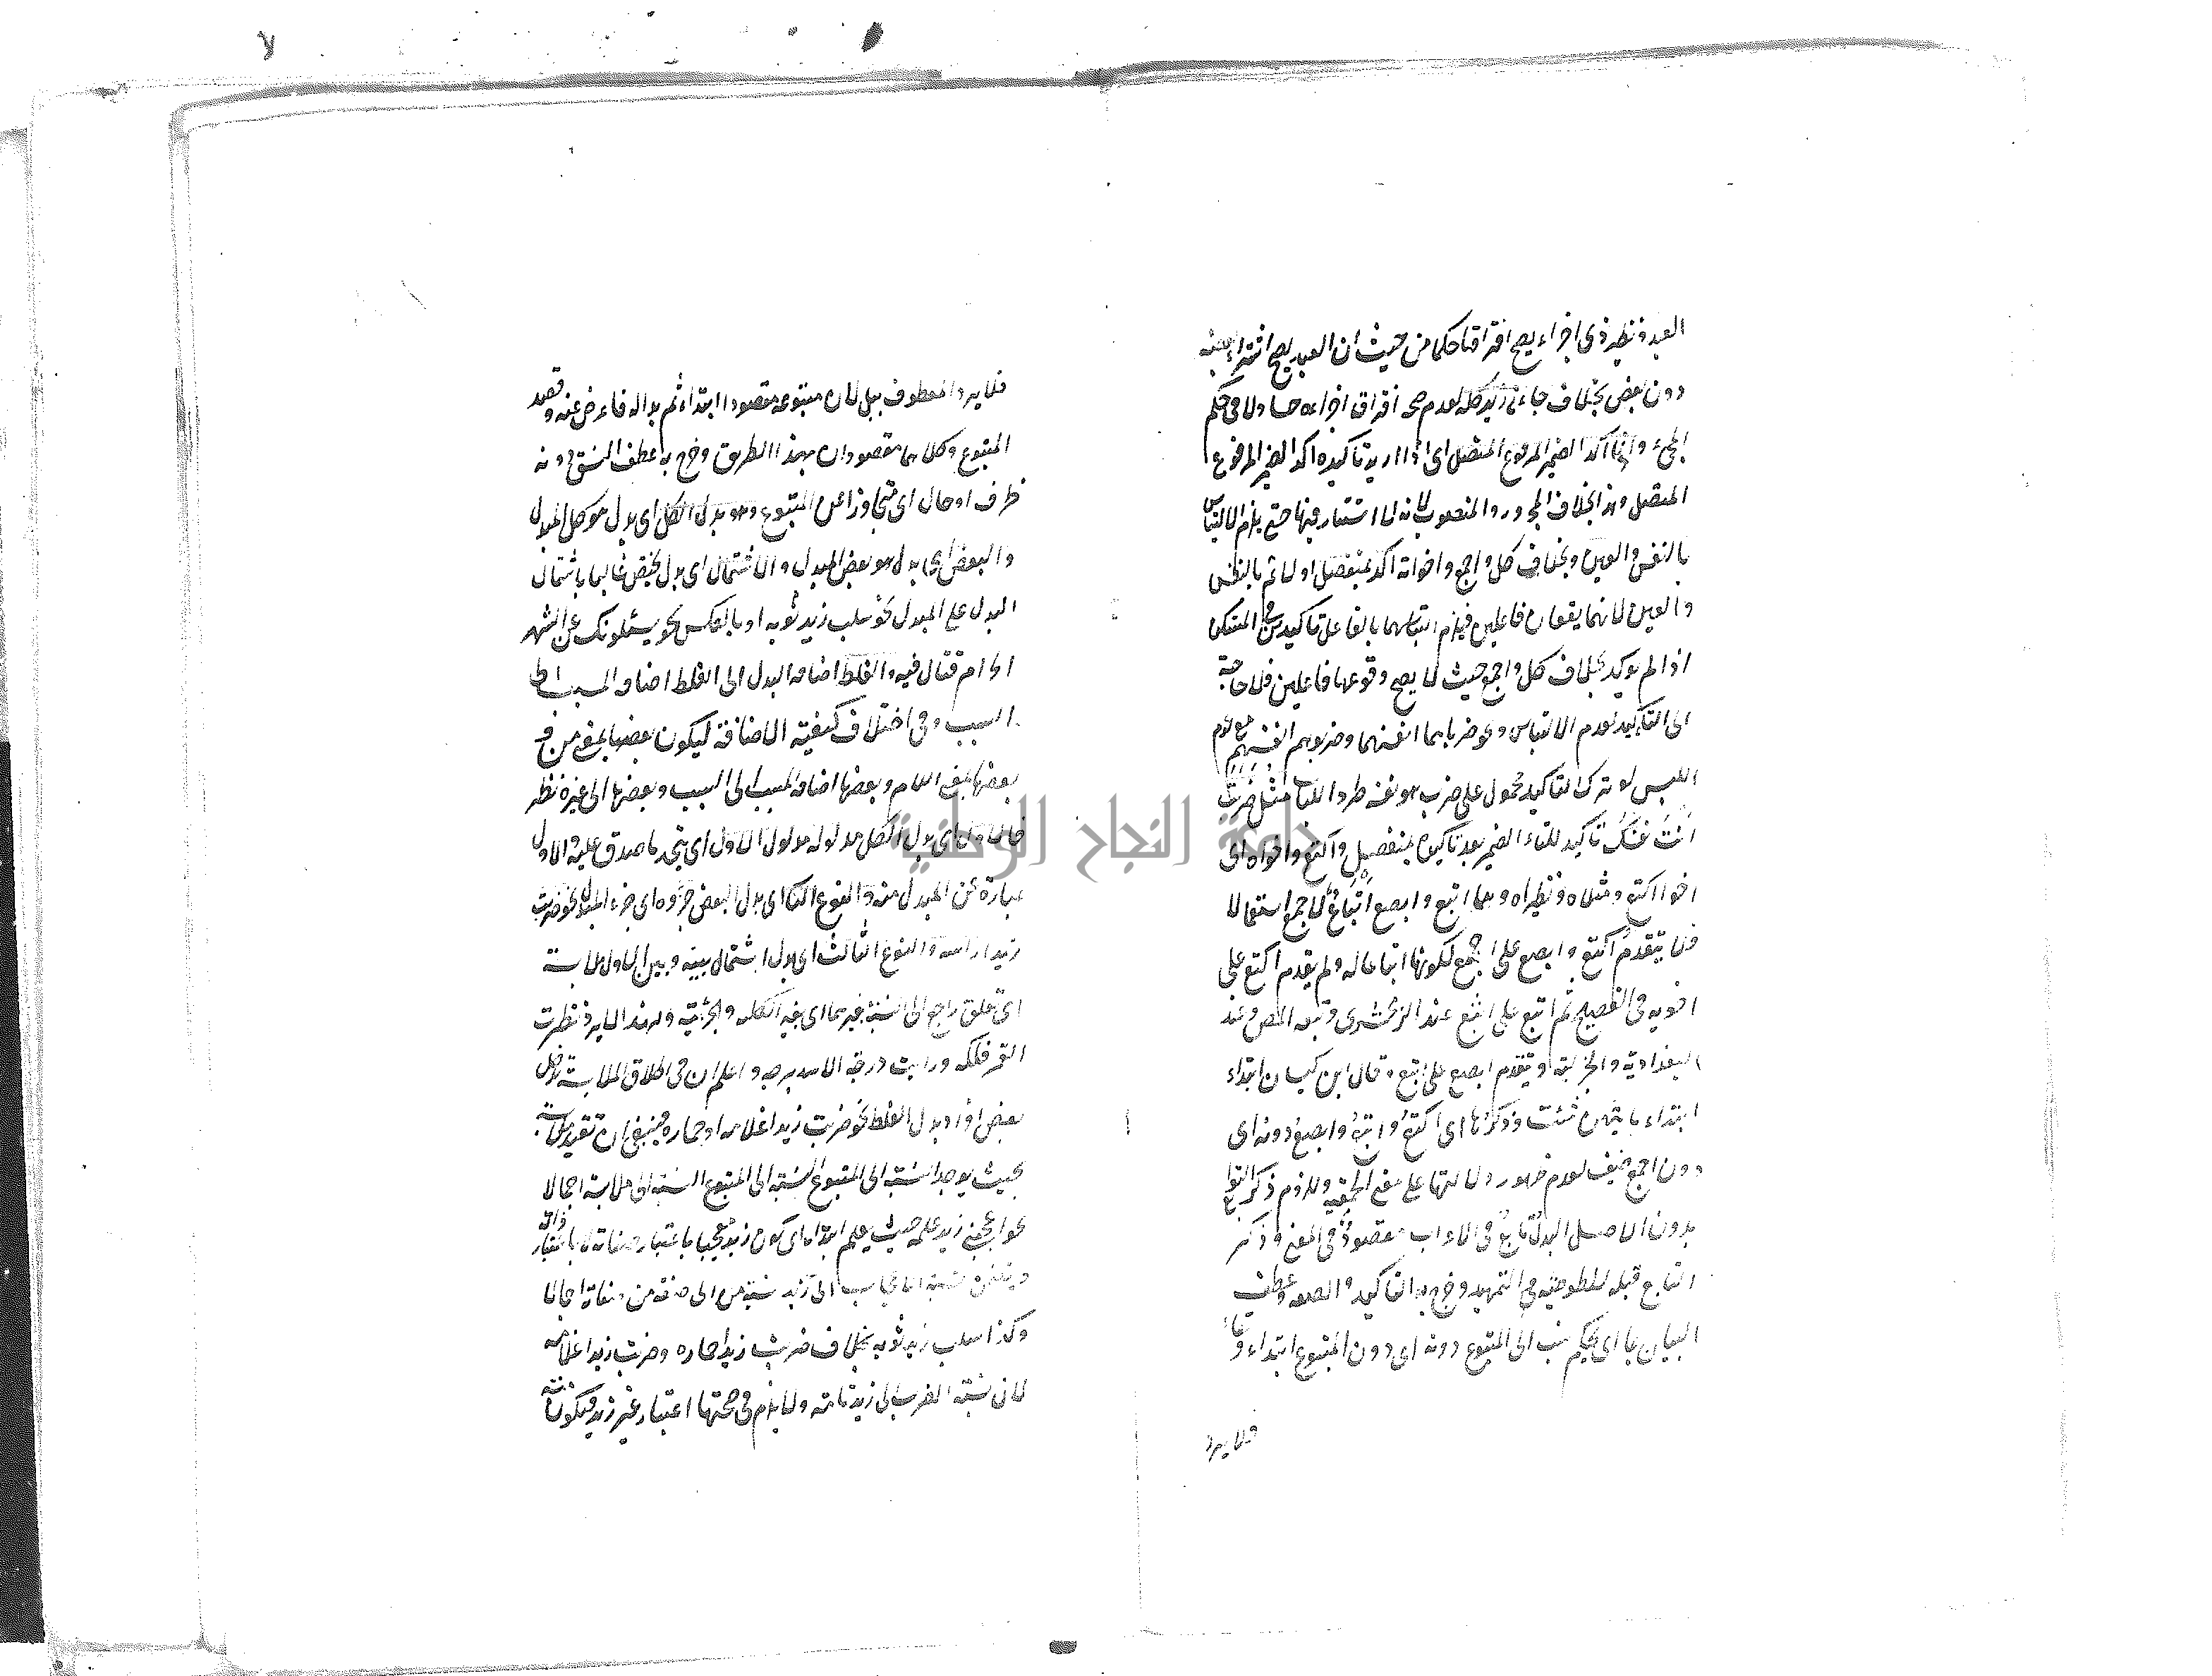 العبد ونظير ذى اجزاء يصح افتراقها حكما من حيث ان العبد يصح اشتراء بعضه
دون بعض بخلاف جاءنى زيد كله لعدم صحة افتراق اجزاءه حسا ولا فى حكم
المجئ واذا اكد الضمير المرفوع المتصل اى اذا اريد تاكيده اكد الضمير المرفوع
المتصل وهذا بخلاف المجرور والمنصوب لانه لا استتار فيها حتى يلزم الالتباس
بالنفس والعين وبخلاف كل واجمع واخواته اكد بمنفصل اولا ثم بالنفس
والعين لانهما يقعان فاعلين فيلزم التباسهما بالفاعل تاكيد من المستكن
اذا لم يوكد بخلاف كل واجمع حيث لا يصح وقوعها فاعلين فلا حاجة
الى التاكيد لعدم الالتباس ونحو ضربا هما انفسهما وضربوهم انفسهم مع لزوم
اللبس لو ترك التاكيد محمول على ضرب هو نفسه طردا للباب مثل ضربت
انت نفسك تاكيد للتاء الضمير بعد تاكيده بمنفصل واكتع واخواه اى
اخوا اكتع ومثلاه ونظيراه وهما ابتع وابصع اتباع لاجمع استعمالا
فلا يتقدم اكتع وابصع على اجمع لكونها اتباعا له ولم يقدم اكتع على
اخويه فى الفصيح ثم ابتع على ابتع عند الزمخشرى وتبعه المص وعند
البغدادية والجزولية ويتقدم ابصع على ابتع وقال ابن كيسان ابتداء
ابتداء بايتهن شئت وذكرها اى اكتع وابتع وابصع دونه اى
دون اجمع ضعيف لعدم ظهور دلالتها على معنى الجمعية وللزوم ذكر التوابع
بدون الاصل البدل تابع فى الاعراب مقصود فى المعنى وذكر
التابع قبله للطوطية فى التمهيد وخرج به التاكيد والصفة وعطف
البيان بما اى بحكم نسب الى المتبوع دونه اى دون المتبوع ابتداء
فلا يرد
فلا يرد المعطوف ببل لان متبوعه مقصودا ابتداء ثم بداله فاعرض عنه وقصد
المتبوع وكلاهما مقصودان بهذا الطريق وخرج به عطف النسق دونه
ظرف او حال اى متجاوزا عن المتبوع وهو بدل الكل اى بدل هو كل المبدل
والبعض اى بدل هو بعض المبدل والاشتمال اى بدل يختص غالبا باشتمال
البدل على المبدل نحو سلب زيد ثوبه او بالعكس نحو يسئلونك عن الشهر
الحرام قتال فيه والغلط اضافة البدل الى الغلط اضافة المسبب الى
السبب وفى اختلاف كيفية الاضافة ليكون بعضها بمعنى من و
بعضها بمعنى اللام وبعضها اضافة المسبب الى السبب وبعضها الى غيره نظر
فالاول اى بدل الكل مدلوله مدلول الاول اى يتحد ما صدق عليه والاول
عبارة عن المبدل منه والنوع الثانى اى بدل البعض جزؤه اى جزء المبدل نحو ضربت
زيدا راسه والنوع الثالث اى بدل اشتمال بينه وبين الاول ملابسة
اى تعلق راجع الى النسبة بغيرهما اى بغير الكلية والجزئية ولهذا لا يرد نظرت
القمر فلكه ورايت درجة الاسد برجه واعلم ان فى اطلاق الملابسة يدخل
بعض افراد بدل الغلط نحو ضربت زيدا غلامه او حماره فينبغى ان تقيد ملابسة
بحيث يوجد النسبة الى المتبوع النسبة الى المتبوع النسبة الى ملابسه اجمالا
نحو اعجبنى زيد علمه حيث يعلم ابتداء اى يكون زيد عجيبا باعتبار صفاته لا باعتبار ذاته
ويتضمن نسبة الاعجاب الى زيد نسبة من الى صفة من صفاته اجمالا
وكذا سلب زيد ثوبه بخلاف ضربت زيدا حماره وضربت زيدا غلامه
لان نسبة الضرب الى زيد تامة ولا يلزم فى صحتها اعتبار غير زيد فيكون
جامعة النجاح الوطنية